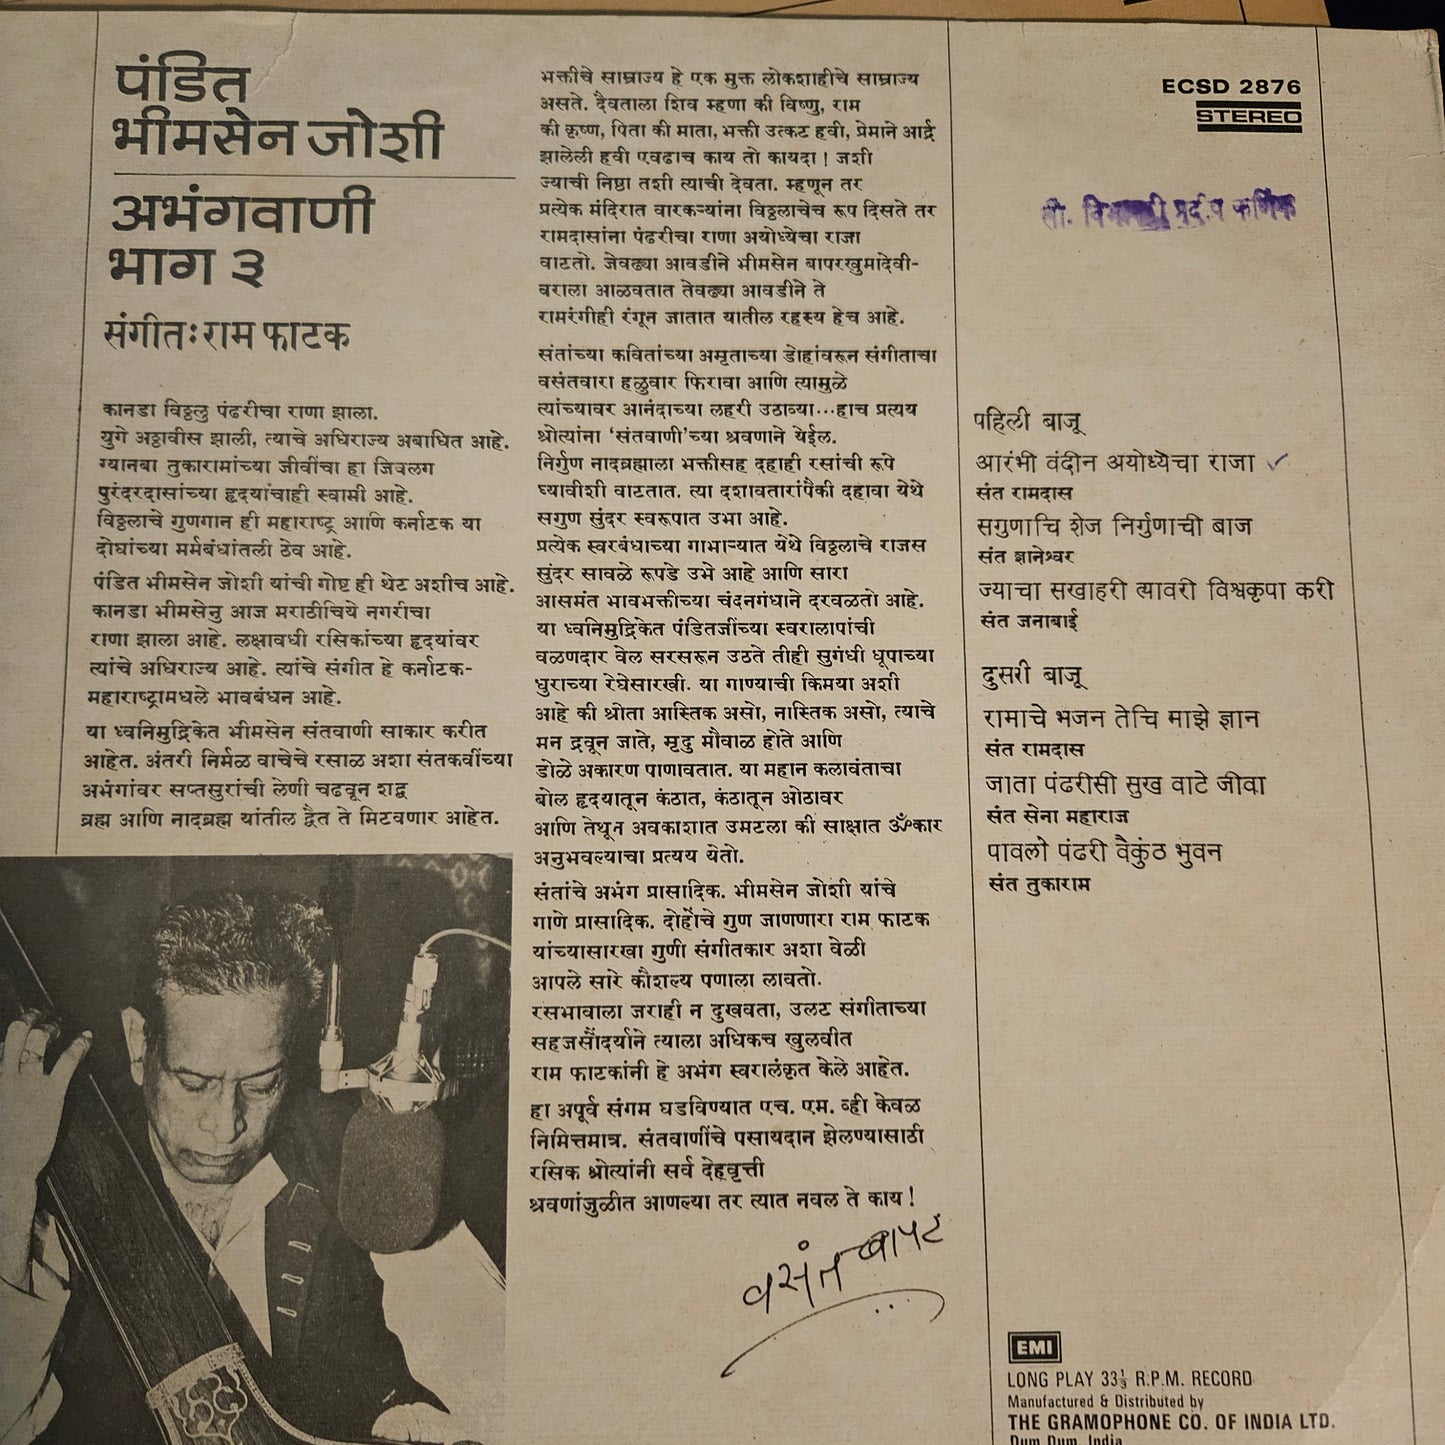 पंडित
भीमसेन जोशी
अभंगवाणी
भाग ३
संगीतः राम फाटक
कानडा विठ्ठलु पंढरीचा राणा झाला.
युगे अठ्ठावीस झाली, त्याचे अधिराज्य अबाधित आहे.
ग्यानबा तुकारामांच्या जीवींचा हा जिवलग
पुरंदरदासांच्या हृदयांचाही स्वामी आहे.
विठ्ठलाचे गुणगान ही महाराष्ट्र आणि कर्नाटक या
दोघांच्या मर्मबंधांतली ठेव आहे.
पंडित भीमसेन जोशी यांची गोष्ट ही थेट अशीच आहे.
कानडा भीमसेनु आज मराठीचिये नगरीचा
राणा झाला आहे. लक्षावधी रसिकांच्या हृदयांवर
त्यांचे अधिराज्य आहे. त्यांचे संगीत हे कर्नाटक-
महाराष्ट्रामधले भावबंधन आहे.
या ध्वनिमुद्रिकेत भीमसेन संतवाणी साकार करीत
आहेत. अंतरी निर्मळ वाचेचे रसाळ अशा संतकवींच्या
अभंगांवर सप्तसुरांची लेणी चढवून शद्ब
ब्रह्म आणि नादब्रह्म यांतील द्वैत ते मिटवणार आहेत.
भक्तीचे साम्राज्य हे एक मुक्त लोकशाहीचे साम्राज्य
असते. दैवताला शिव म्हणा की विष्णु, राम
की कृष्ण, पिता की माता, भक्ती उत्कट हवी, प्रेमाने आर्द्र
झालेली हवी एवढाच काय तो कायदा! जशी
ज्याची निष्ठा तशी त्याची देवता. म्हणून तर
प्रत्येक मंदिरात वारकऱ्यांना विठ्ठलाचेच रूप दिसते तर
रामदासांना पंढरीचा राणा अयोध्येचा राजा
वाटतो. जेवढ्या आवडीने भीमसेन बापरखुमादेवी-
वराला आळवतात तेवढ्या आवडीने ते
रामरंगीही रंगून जातात यातील रहस्य हेच आहे.
संतांच्या कवितांच्या अमृताच्या डोहांवरून संगीताचा
वसंतवारा हळुवार फिरावा आणि त्यामुळे
त्यांच्यावर आनंदाच्या लहरी उठाव्या...हाच प्रत्यय
श्रोत्यांना ‘संतवाणी’च्या श्रवणाने येईल.
निर्गुण नादब्रह्माला भक्तीसह दहाही रसांची रूपे
घ्यावीशी वाटतात. त्या दशावतारांपैकी दहावा येथे
सगुण सुंदर स्वरूपात उभा आहे.
प्रत्येक स्वरबंधाच्या गाभाऱ्यात येथे विठ्ठलाचे राजस
सुंदर सावळे रूपडे उभे आहे आणि सारा
आसमंत भावभक्तीच्या चंदनगंधाने दरवळतो आहे.
या ध्वनिमुद्रिकेत पंडितजींच्या स्वरालापांची
वळणदार वेल सरसरून उठते तीही सुगंधी धूपाच्या
धुराच्या रेघेसारखी. या गाण्याची किमया अशी
आहे की श्रोता आस्तिक असो, नास्तिक असो, त्याचे
मन द्रवून जाते, मृदु मौवाळ होते आणि
डोळे अकारण पाणावतात. या महान कलावंताचा
बोल हृदयातून कंठात, कंठातून ओठावर
आणि तेथून अवकाशात उमटला की साक्षात ॐकार
अनुभवल्याचा प्रत्यय येतो.
संतांचे अभंग प्रासादिक. भीमसेन जोशी यांचे
गाणे प्रासादिक. दोहोंचे गुण जाणणारा राम फाटक
यांच्यासारखा गुणी संगीतकार अशा वेळी
आपले सारे कौशल्य पणाला लावतो.
रसभावाला जराही न दुखवता, उलट संगीताच्या
सहजसौंदर्याने त्याला अधिकच खुलवीत
राम फाटकांनी हे अभंग स्वरालंकृत केले आहेत.
हा अपूर्व संगम घडविण्यात एच. एम. व्ही केवळ
निमित्तमात्र. संतवाणींचे पसायदान झेलण्यासाठी
रसिक श्रोत्यांनी सर्व देहवृत्ती
श्रवणांजुळीत आणल्या तर त्यात नवल ते काय!
वसंत बापट
ECSD 2876
STEREO
सौ. प्रदीप कर्णिक
पहिली बाजू
आरंभी वंदीन अयोध्येचा राजा
संत रामदास
सगुणाचि शेज निर्गुणाची बाज
संत ज्ञानेश्वर
ज्याचा सखाहरी त्यावरी विश्वकृपा करी
संत जनाबाई
दुसरी बाजू
रामाचे भजन तेचि माझे ज्ञान
संत रामदास
जाता पंढरीसी सुख वाटे जीवा
संत सेना महाराज
पावलो पंढरी वैकुंठ भुवन
संत तुकाराम
EMI
LONG PLAY 33⅓ R.P.M. RECORD
Manufactured & Distributed by
THE GRAMOPHONE CO. OF INDIA LTD.
Dum Dum, India